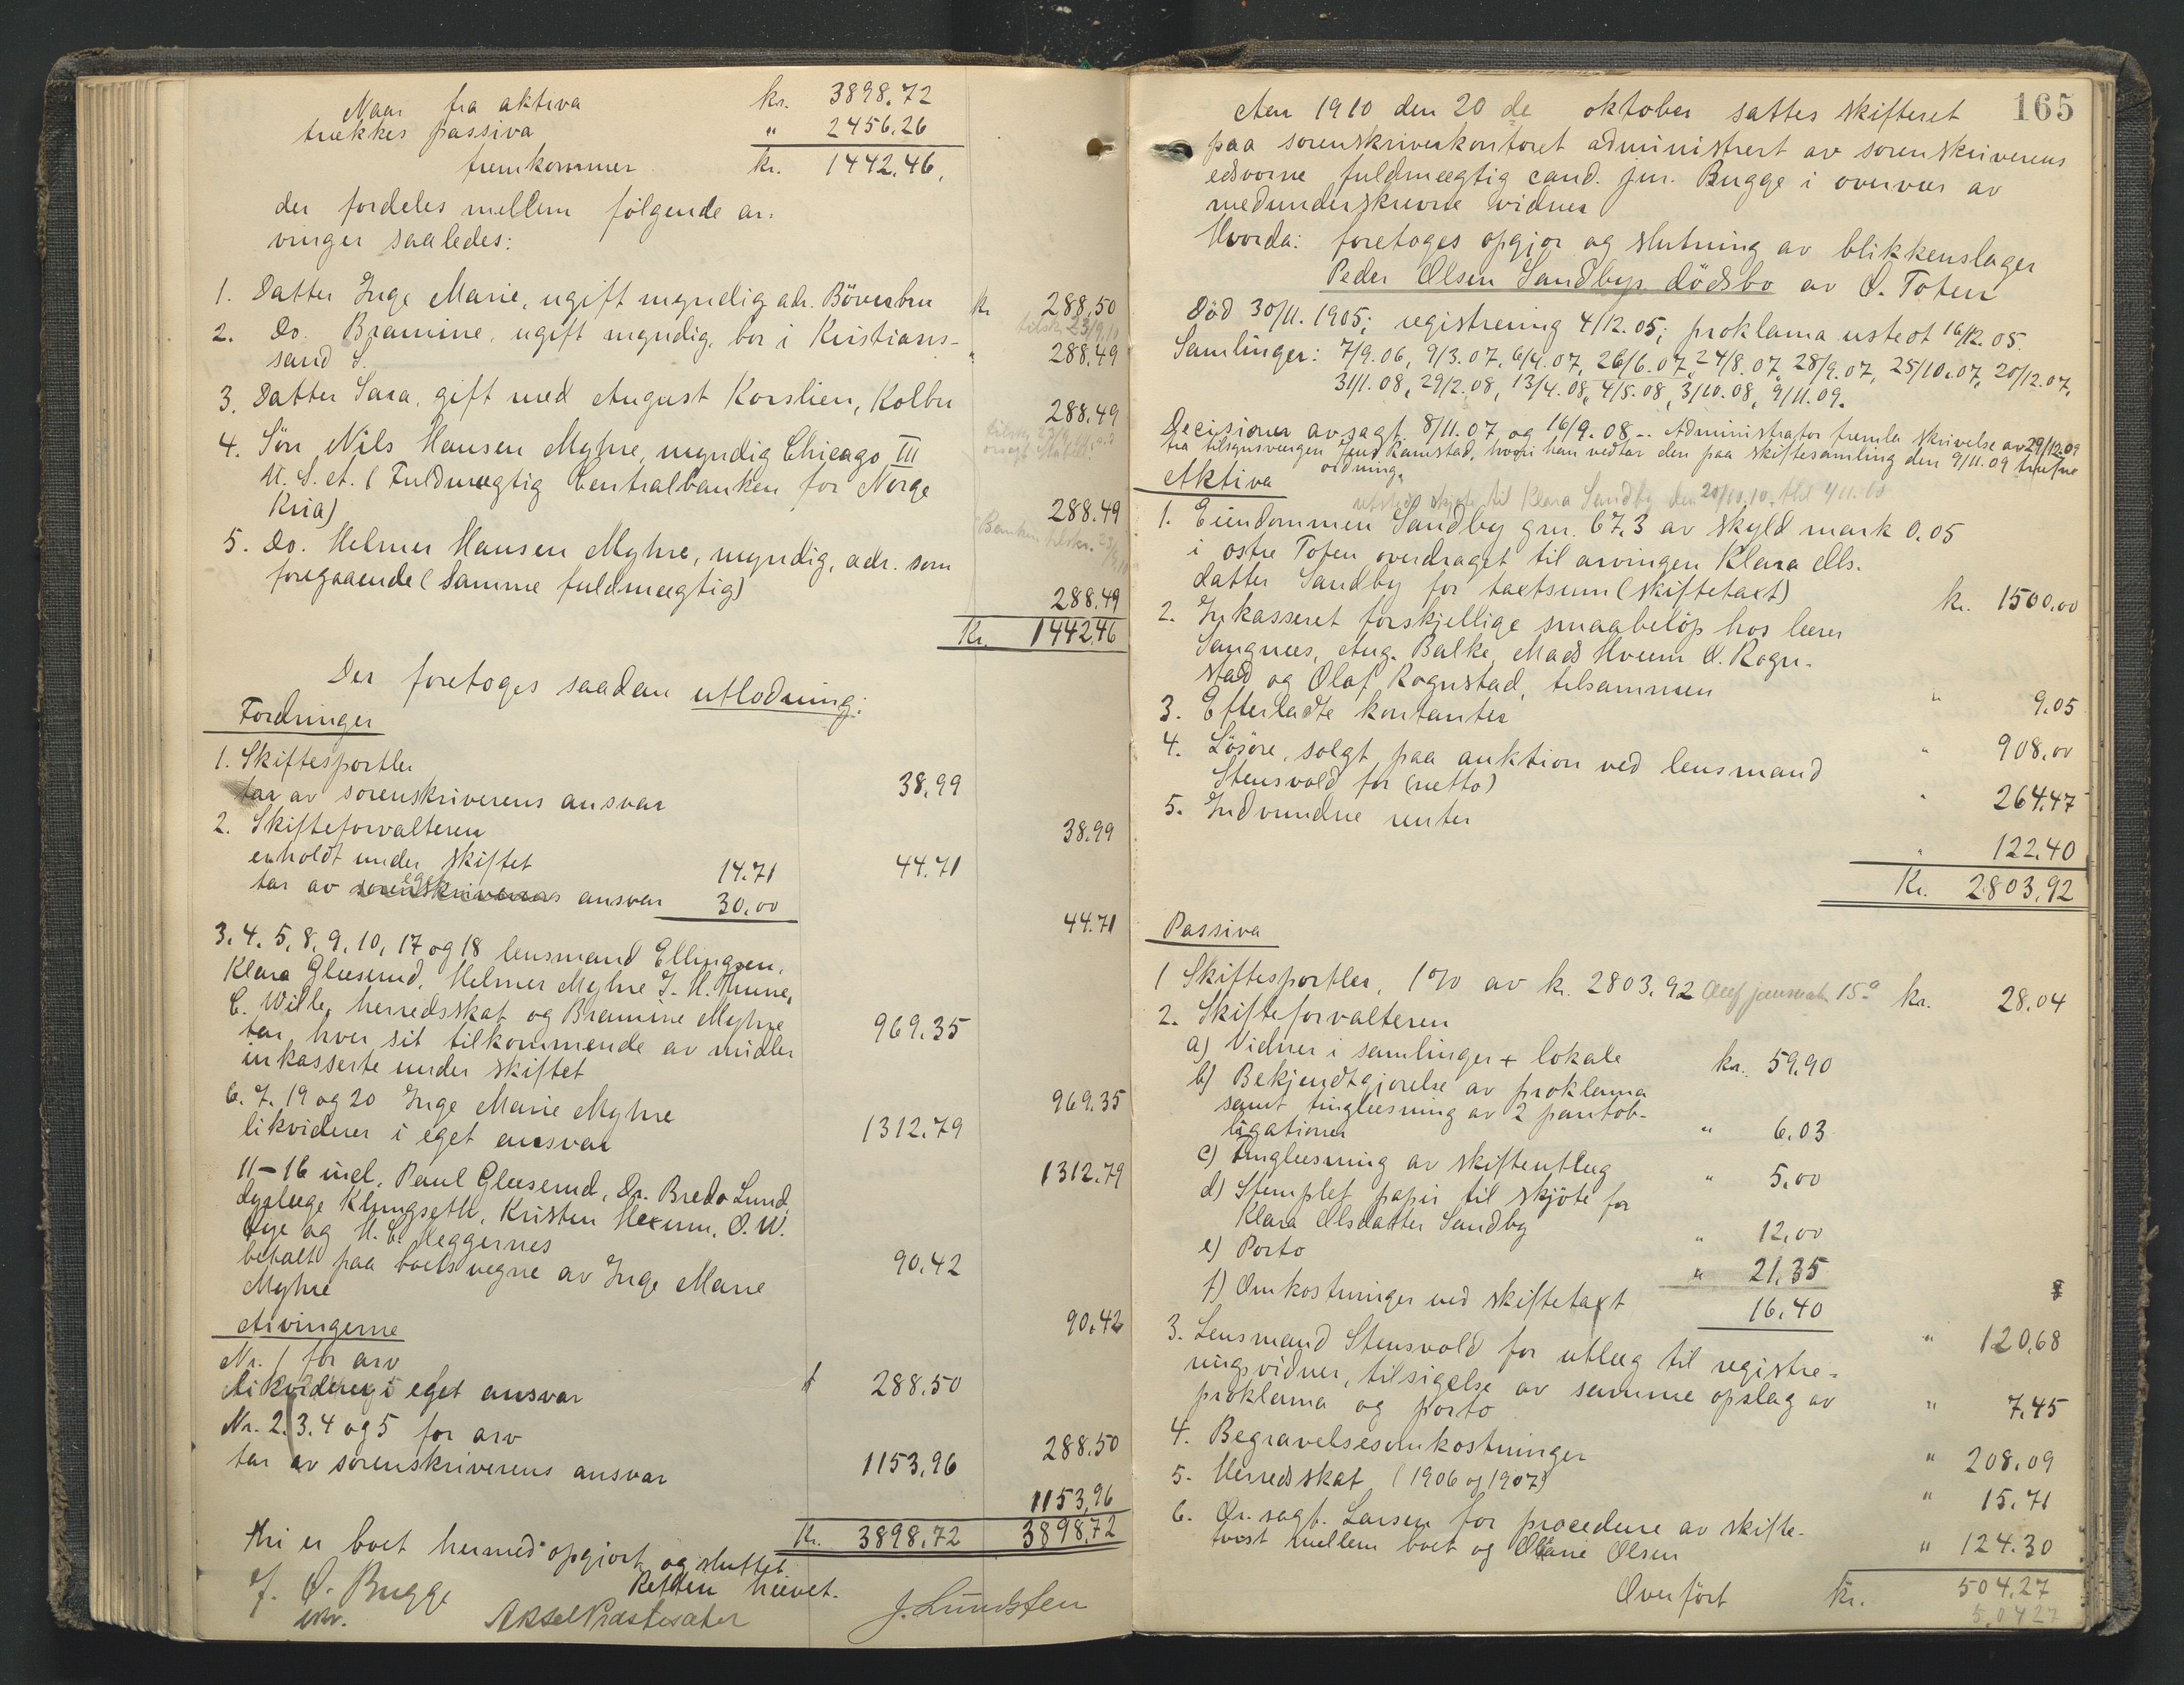 Naar fra aktiva kr. 3898.72
trækkes passiva " 2456.26
fremkommer kr. 1442.46.
der fordeles mellem følgende ar-
vinger saaledes:
1. Datter Inge Marie, ugift myndig adr. Böverbru kr. 288.50
2. Do. Bramine, ugift myndig, bor i Kristians-
sand S. " 288.49
3. Datter Sara, gift med August Korslien, Kolbu 288.49
4. Sön Nils Hansen Myhre, myndig Chicago Ill
U. S. A. (Fuldmægtig Centralbanken for Norge
Kria) 288.49
5. Do. Helmer Hansen Myhre, myndig, adr. som
foregaaende (samme fuldmægtig) 288.49
Kr. 1442.46
Der foretoges saadan utlodning:
Fordringer
1. Skiftesportler 38.99
tar av sorenskriverens ansvar 38.99
2. Skifteforvalteren 44.71
erholdt under skiftet 14.71
tar av eget ansvar 30.00 44.71
3. 4. 5, 8, 9, 10, 17 og 18 lensmand Ellingsen,
Klara Glæserud, Helmer Myhre J. H. Thune,
C. Wille, herredsskat og Bramine Myhre 969.35
tar hver sit tilkommende av midler
inkasserte under skiftet 969.35
6. 7. 19 og 20 Inge Marie Myhre 1312.79
likviderer i eget ansvar 1312.79
11-16 incl. Paul Glæserud, Dr. Breda Lund,
dyrlæge Klungseth, Kristen Hexum, O. W.
Lye og H. C. Heggernes 90.42
betalt paa boets vegne av Inge Marie
Myhre 90.42
Arvingerne
Nr. 1 for arv 288.50
likviderer i eget ansvar 288.50
Nr. 2. 3. 4 og 5 for arv 1153.96
tar av sorenskriverens ansvar 1153.96
Kr. 3898.72 3898.72
Thi er boet hermed opgjort og sluttet.
Retten hævet.
f. O. Bugge
Aksel Præstesæter J. Lundsten
165
Aar 1910 den 20 de oktober sattes skifteret
paa sorenskriverkontoret administrert av sorenskriverens
edsvorne fuldmægtig cand. jur. Bugge i overvær av
medunderskrevne vidner
Hvorda: foretoges opgjør og slutning av blikkenslager
Peder Olsen Sandbys dödsbo av Ö. Toten
Död 30/11. 1905; registrering 4/12. 05; proklama utstedt 16/12. 05.
Samlinger: 7/9. 06, 9/3. 07, 6/4. 07, 26/6. 07, 27/8. 07, 28/9. 07, 25/10. 07, 20/12. 07,
31/1. 08, 29/2. 08, 13/4. 08, 4/5. 08, 3/10. 08, 9/11. 09.
Decisioner avsagt 8/11. 07 og 16/9. 08. - Administrator fremla skrivelse av 29/12. 09
fra tilsynsværgen Jens Ramstad, hvori han vedtar den paa skiftesamling den 9/11. 09 trufne
ordning.
Aktiva
utstedt skjøte til Klara Sandby den 20/10. 10.
1. Eiendommen Sandby gnr. 67.3 av skyld mark 0.05
i østre Toten overdraget til arvingen Klara Ols-
datter Sandby for taxtsum (skiftetaxt) kr. 1500.00
2. Inkasseret forskjellige smaabeløp hos lærer
Sangnæs, Aug. Balke, Mads Hveem O. Rogn-
stad og Olaf Rognstad, tilsammen " 9.05
3. Efterladte kontanter " 908.00
4. Lösöre, solgt paa auktion ved lensmand
Stensvold for (netto) " 264.47
5. Indvundne renter " 122.40
Kr. 2803.92
Passiva
1 Skiftesportler, 1 % av kr. 2803.92 kr. 28.04
2. Skifteforvalteren
a) Vidner i samlinger + lokale kr. 59.90
b) Bekjendtgjørelse av proklama
samt tinglæsning av 2 pantob-
ligationer " 6.03
c) Tinglæsning av skifteutlæg " 5.00
d) Stemplet papir til skjöte for
Klara Olsdatter Sandby " 12.00
e) Porto " 21.35
f) Omkostninger ved skiftetaxt 16.40 " 120.68
3. Lensmand Stensvold for utlæg til registre-
ringsvidner, tilsigelse av samme opslag av
proklama og porto " 7.45
4. Begravelsesomkostninger " 208.09
5. Herredsskat (1906 og 1907) " 15.71
6. Or. sagf. Larsen for procedure av skifte-
tvist mellem boet og Oliane Olsen " 124.30
Overført kr. 504.27
504 27